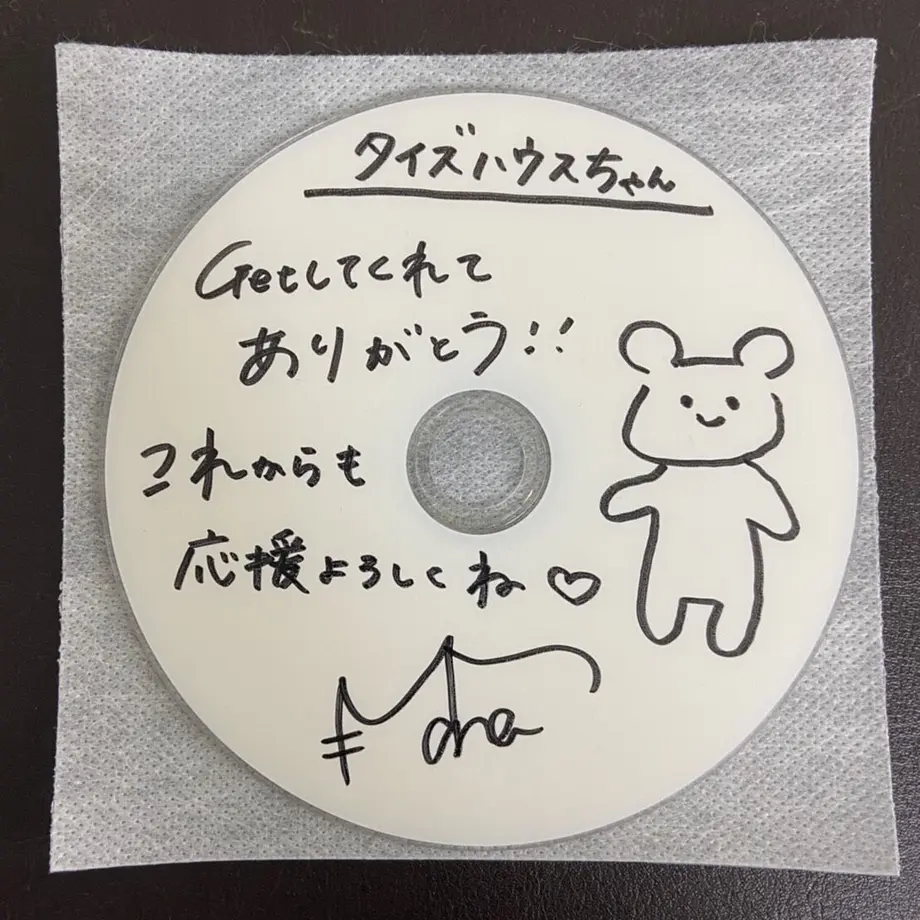 タイズハウスちゃん
Getしてくれて
ありがとう!!
これからも
応援よろしくね♡